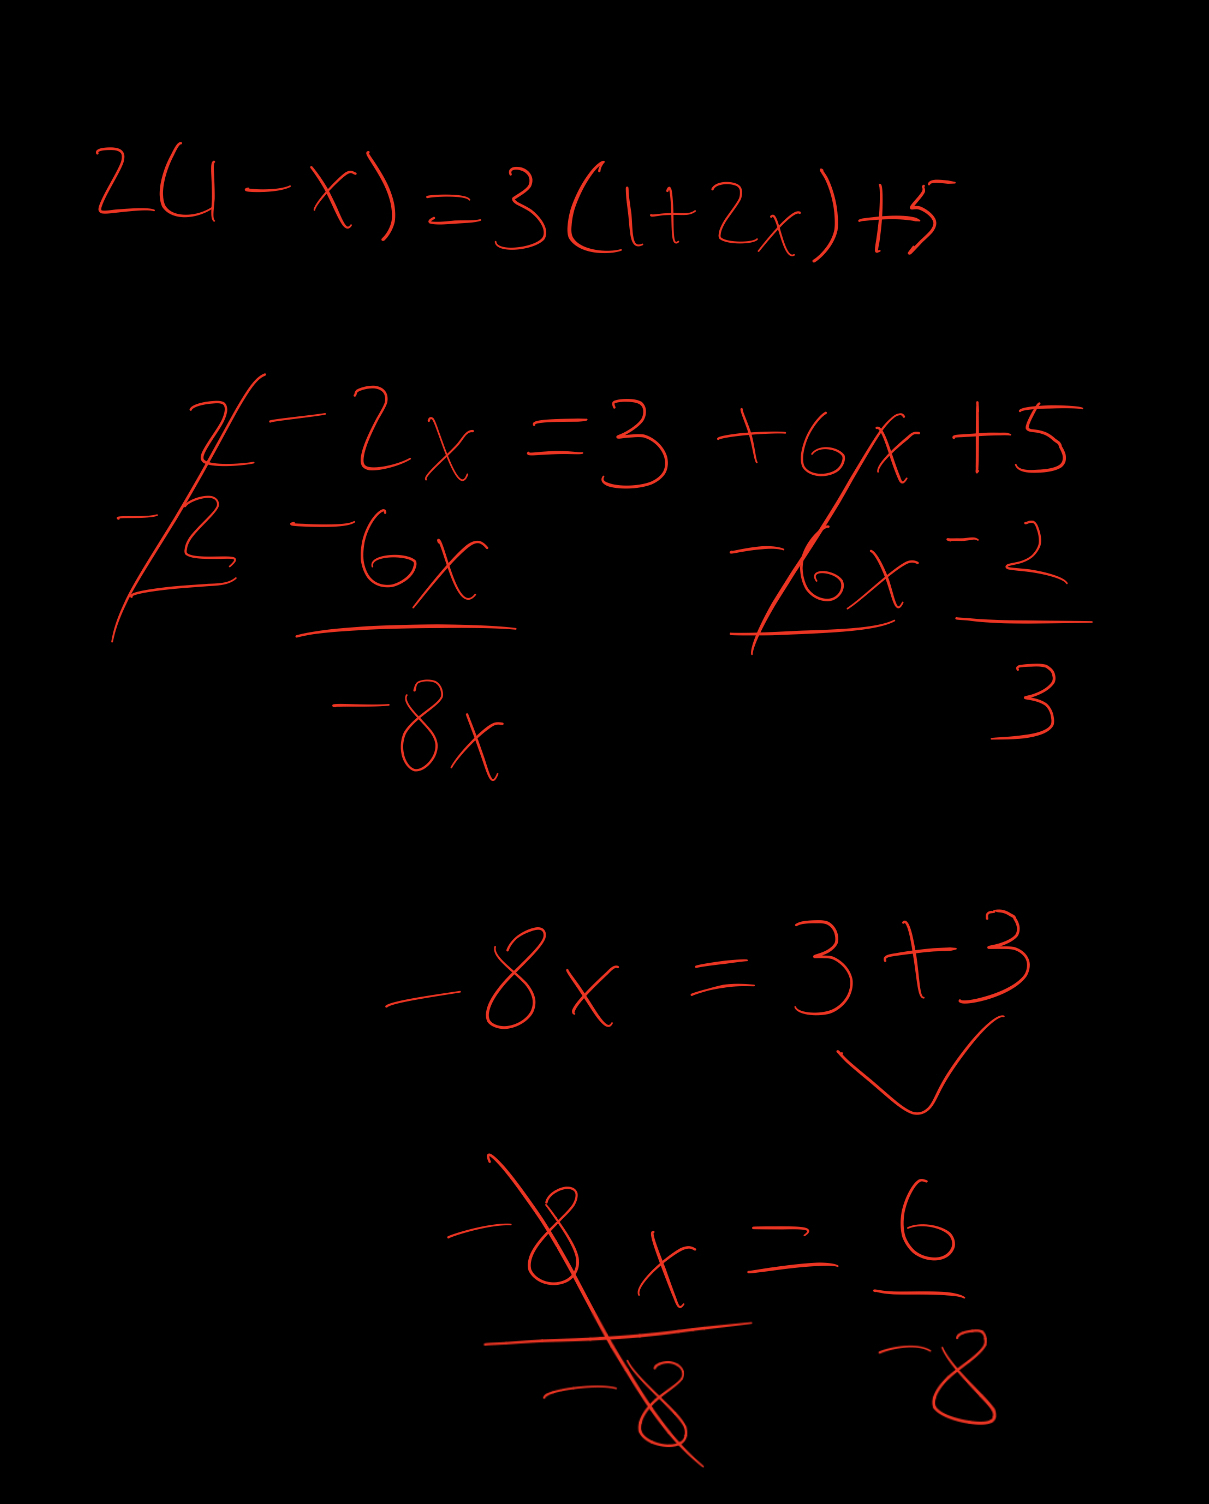 2(1-x)=3(1+2x)+5
2-2x=3+6x+5
-2 -6x -6x -2
-8x 3
-8x=3+3
-8x=6
-8 -8